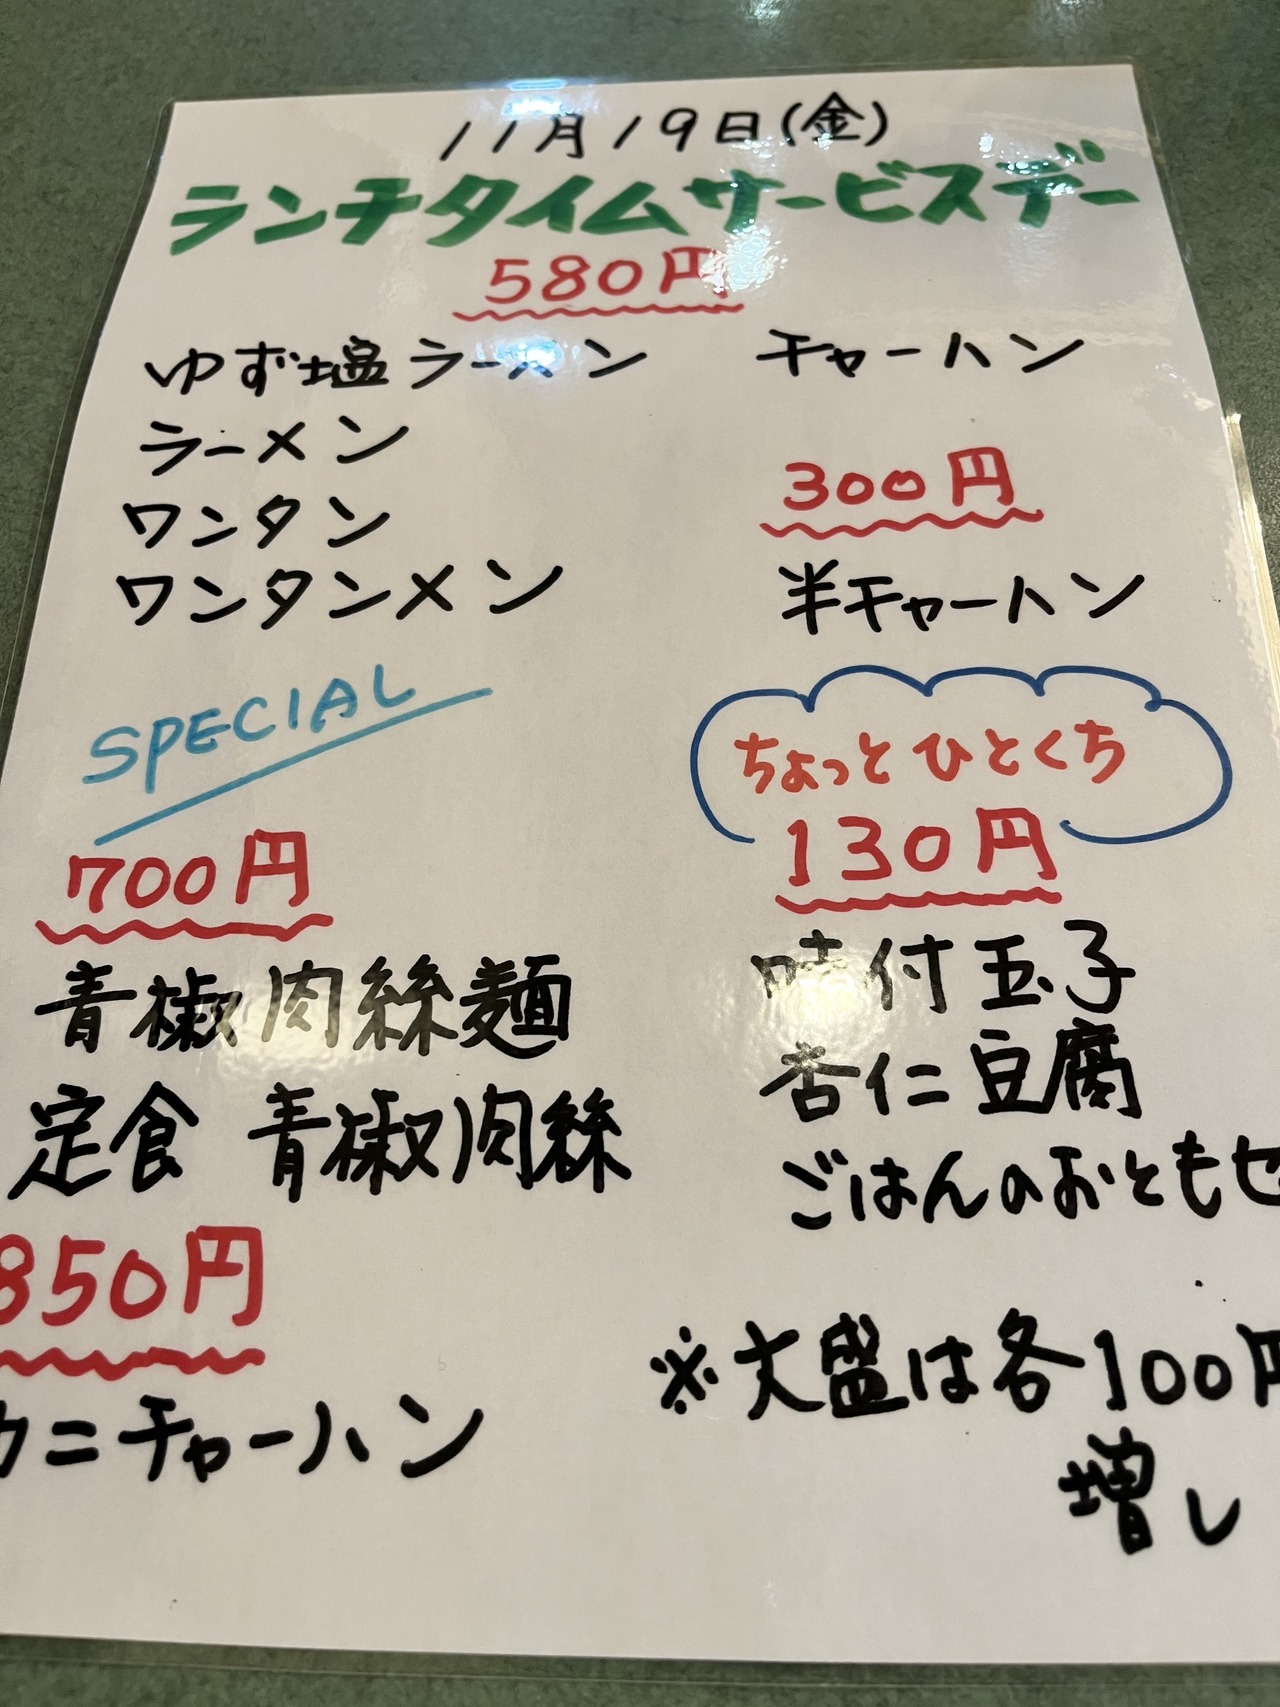 11月19日(金)
ランチタイムサービスデー
580円
ゆず塩ラーメン
ラーメン
ワンタン
ワンタンメン
チャーハン
300円
半チャーハン
SPECIAL
700円
青椒肉絲麺
定食 青椒肉絲
850円
カニチャーハン
ちょっとひとくち
130円
味付玉子
杏仁豆腐
ごはんのおともセ
※大盛は各100円
増し